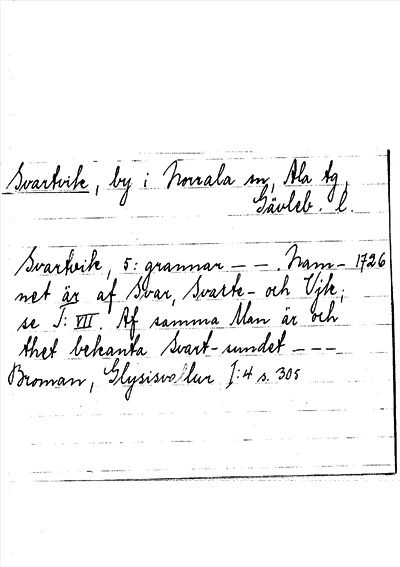 Svartvik, by i Norrala sn, Ala tg,
Gävleb. l.
Svartvik, 5: grannar – – . Nam- 1726
net är af Svar, Svarte- och Vjk;
se T: VII. Af samma Man är och
thet bekanta Svart-sundet – – –
Broman, Glysisvallur I:4 s. 305